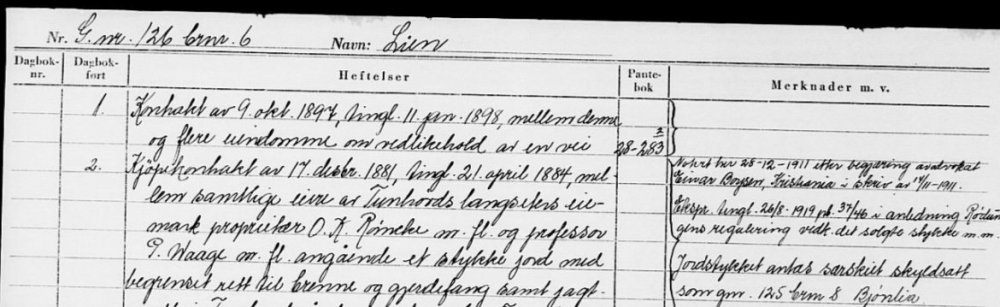 Nr. G.nr. 126 brnr. 6 Navn: Lien
Dagbok- nr. Dagbok- ført Heftelser Pante- bok Merknader m. v.
1. Kontrakt av 9. okt. 1897, tingl. 11. jan. 1898, mellem denne
og flere eiendomme om vedlikehold av en vei 28-283
2. Kjöpekontrakt av 17. desbr. 1881, tingl. 21. april 1884, mel-
lem samtlige eiere av Tunhovds langseters eie-
mark proprietær O. K. Römcke m. fl. og professor
P. Waage m. fl. angående et stykke jord med
begrenset rett til brenne og gjerdefang samt jagt-
Notert her 28-12-1911 etter begjæring av advokat
Einar Boysen, Kristiania i skriv av 14/11-1911.
Ekspr. tingl. 26/8-1919 pb. 37/46 i anledning Rødun-
gens regulering vedk. det solgte stykke m.m.
Jordstykket antas særskilt skyldsatt
som gnr. 125 brnr 8 Bjönlia